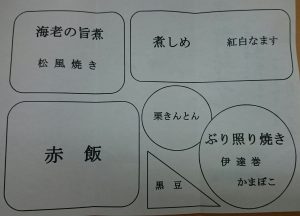 海老の旨煮
松風焼き
煮しめ
紅白なます
赤飯
栗きんとん
黒豆
ぶり照り焼き
伊達巻
かまぼこ